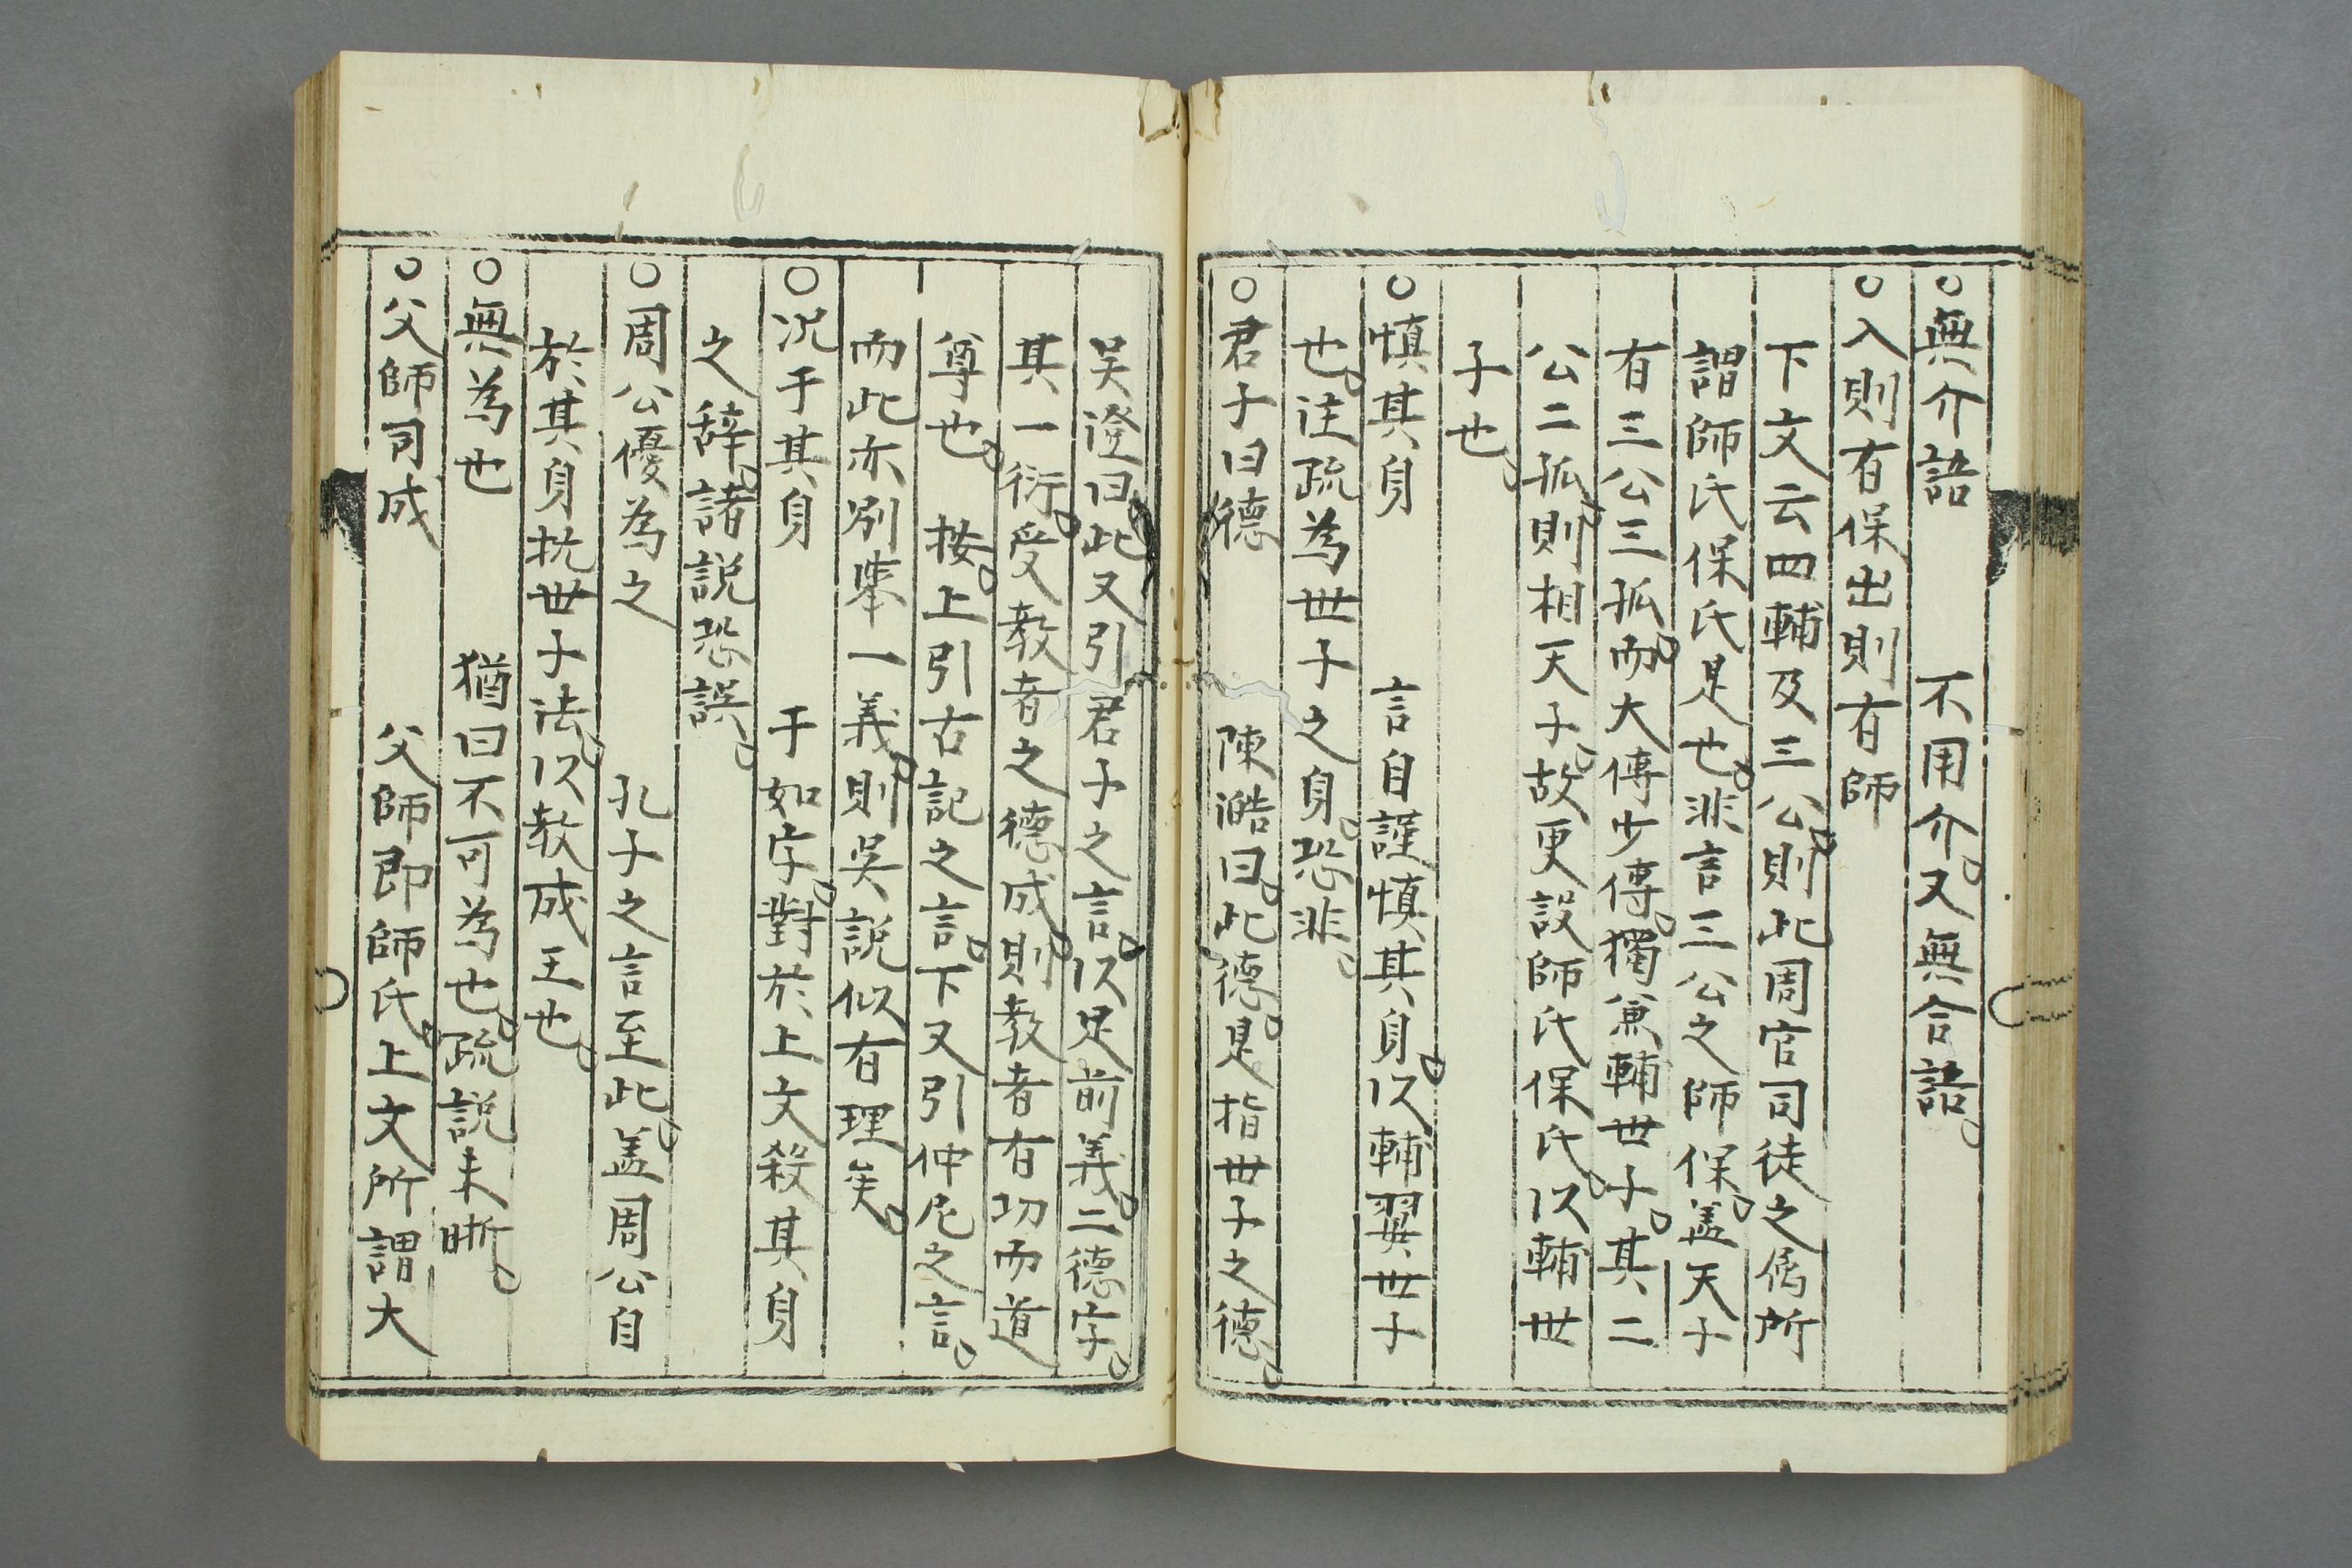 ○無介語　不用介。又無合語。
○入則有保出則有師
下文云四輔及三公。則此周官司徒之属所
謂師氏保氏是也。非言三公之師保。盖天子
有三公三孤。而大傅少傅。獨兼輔世子。其二
公二孤。則相天子。故更設師氏保氏。以輔世
子也。
○慎其身　言自謹慎其身。以輔翼世子
也。注疏為世子之身。恐非。
○君子曰德　陳澔曰。此德。是指世子之德。
吴澄曰。此又引君子之言。以足前義。二德字。
其一衍。受教者之德成。則教者有功而道
尊也。　按。上引古記之言。下又引仲尼之言。
而此亦别舉一義。則吴説似有理矣。
○况于其身　于如字。對於上文殺其身
之辞。諸説恐誤。
○周公優為之　孔子之言至此。盖周公自
於其身抗世子法。以教成王也。
○無為也　猶曰不可為也。疏説未晰。
○父師司成　父師即師氏。上文所謂大